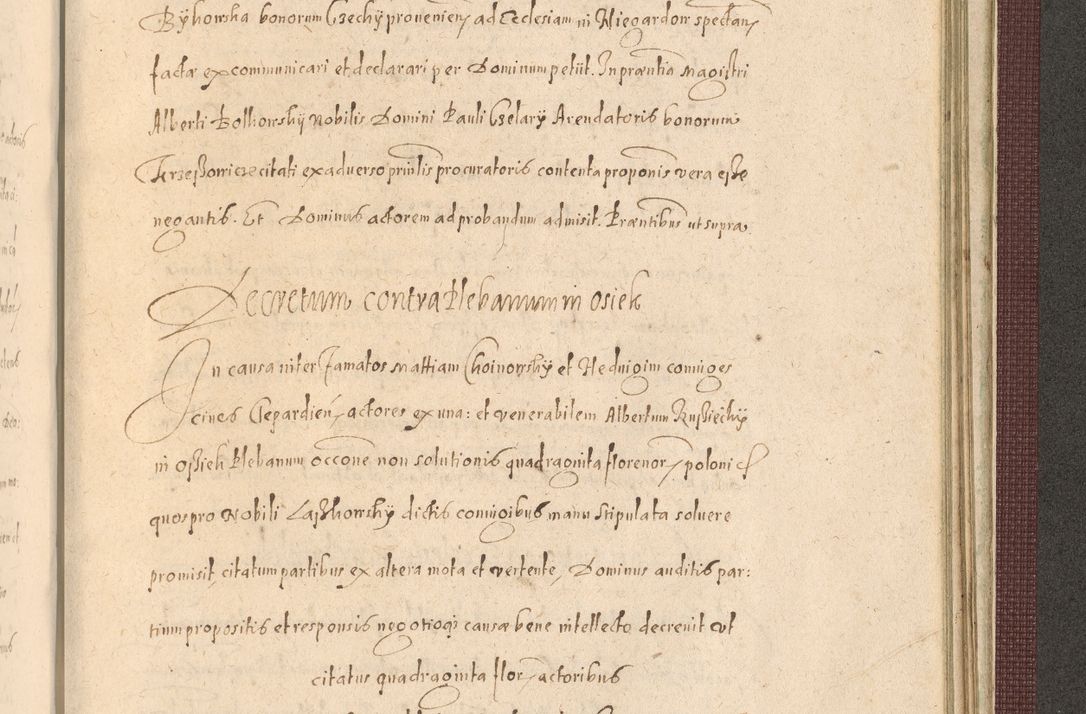 Bÿkowska bonorum Czechÿ prouenien, ad Ecclesiam in Niegardow spectan,
factæ excommunicari et declarari per Dominum petiit. In præntia Magistri
Alberti Bolkowskÿ Nobilis Domini Pauli Czelarÿ Arendatoris bonorum
Krzeßowicze citati ex aduerso prinlis procuratoris contenta proponis vera eße
negantis. Et Dominus actorem ad probandum admisit. Præntibus ut supra
Decretum contra Plebanum in Osiek
In causa inter Famatos Mattiam Choinowskÿ et Heduigim coniuges
ciues Clepardien, actores ex una: et venerabilem Albertum Rußieckÿ
in Oßiek Plebanum occone non solutionis quadraginta florenor, poloni
quos pro Nobili Laßkowskÿ dictis coniugibus manu stipulata soluere
promisit, citatum partibus ex altera mota et vertente, Dominus auditis par:
tium propositis et responsis negotioq causæ bene intellecto decreuit ut
citatus quadraginta flor, actoribus